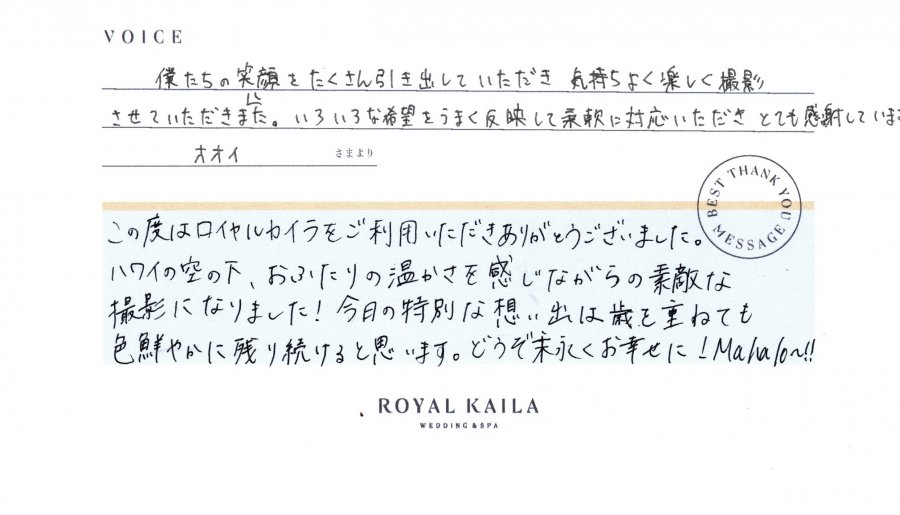 VOICE
僕たちの笑顔をたくさん引き出していただき 気持ちよく楽しく撮影
させていただきました。いろいろな希望をうまく反映して柔軟に対応いただき とても感謝していま
オオイ さまより
BEST THANK YOU MESSAGE
この度はロイヤルカイラをご利用いただきありがとうございました。
ハワイの空の下、おふたりの温かさを感じながらの素敵な
撮影になりました！今日の特別な想い出は歳を重ねても
色鮮やかに残り続けると思います。どうぞ末永くお幸せに！Mahalo~!!
ROYAL KAILA
WEDDING & SPA